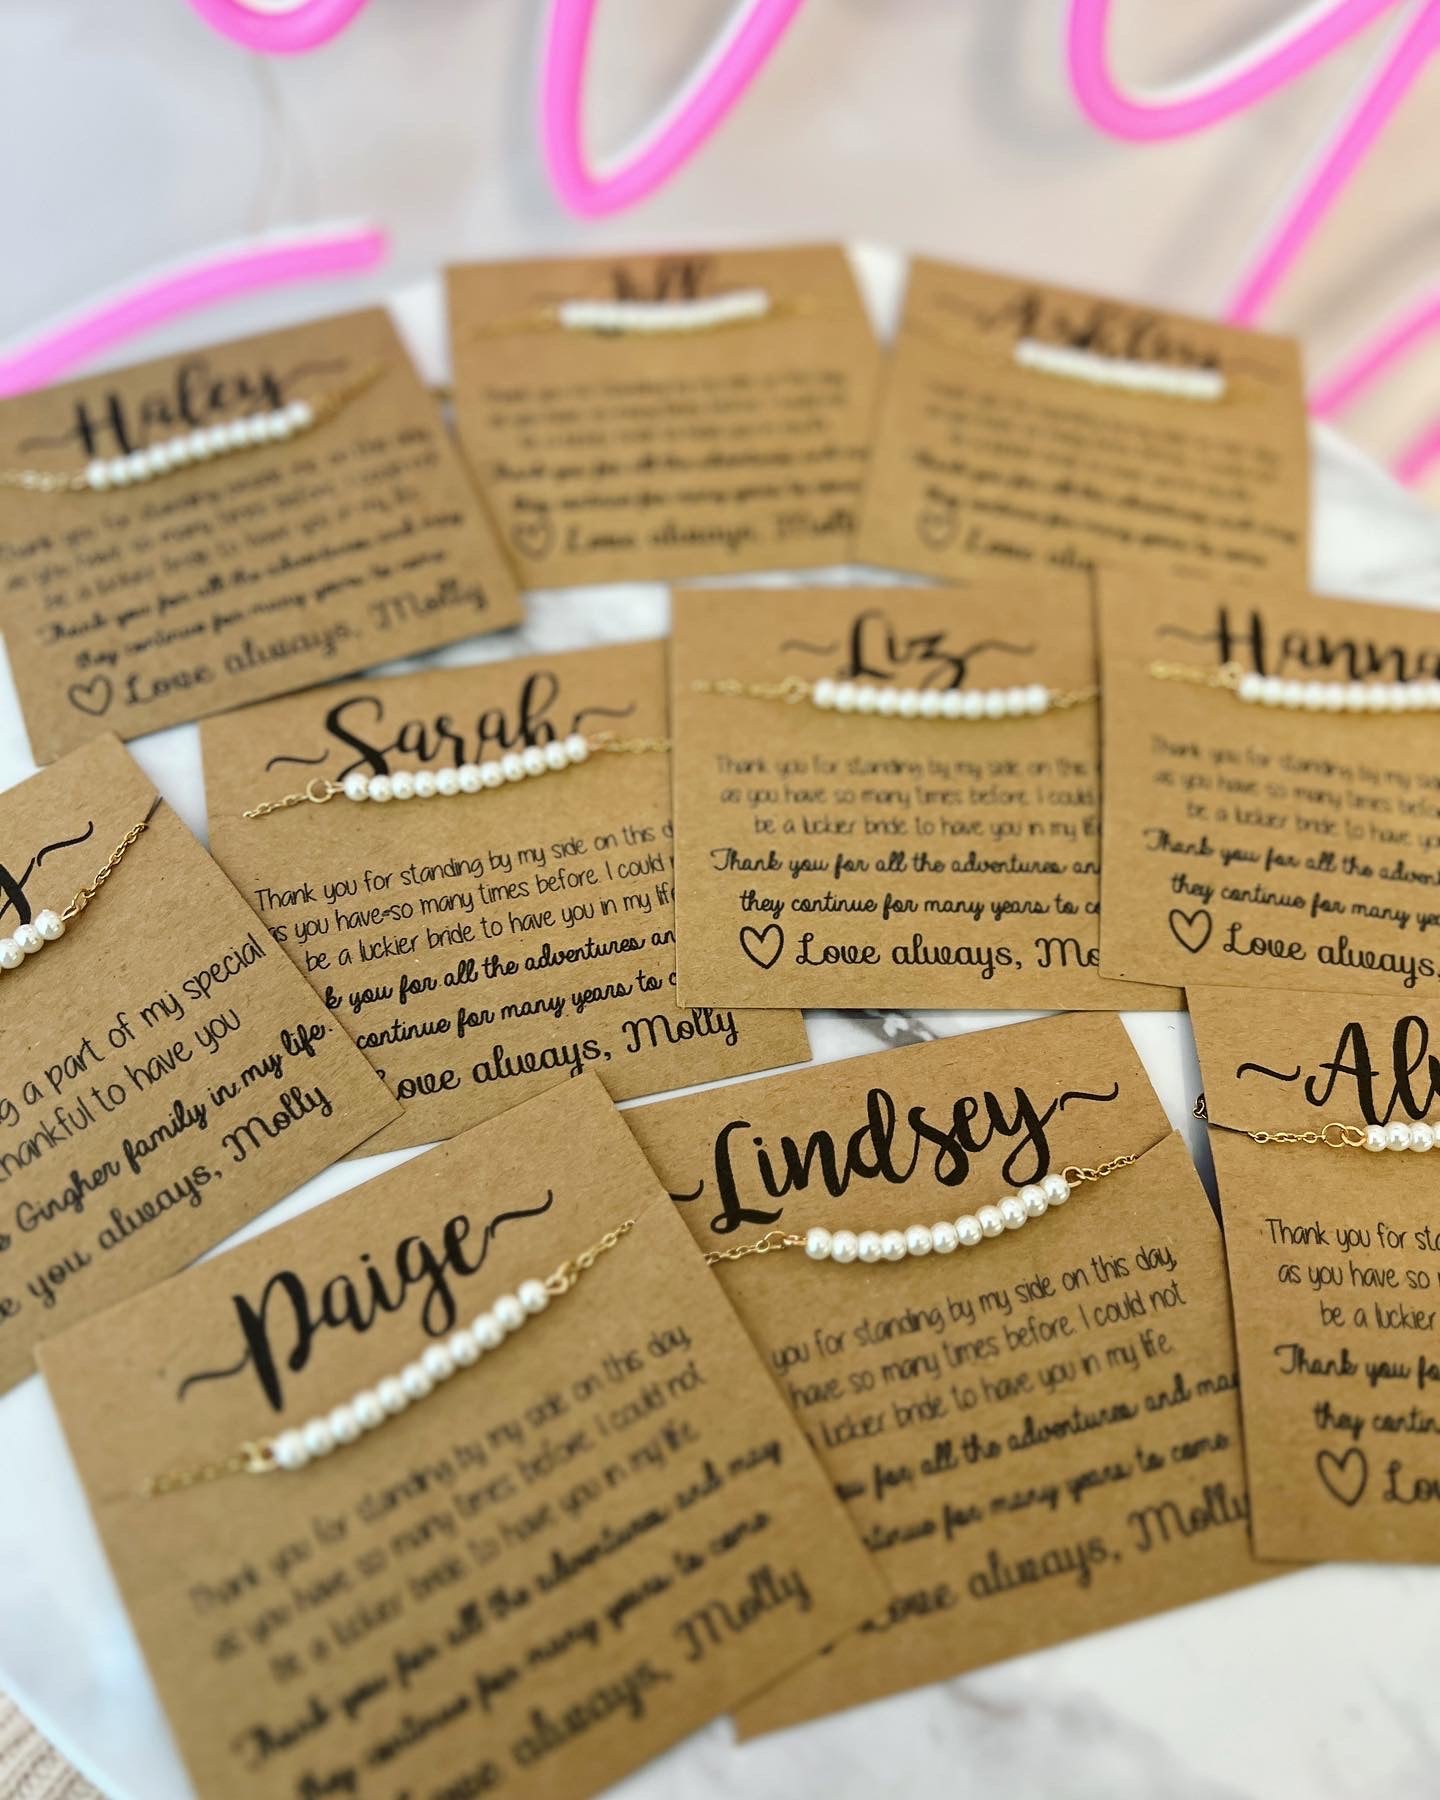 Haley
Thank you for standing beside me on this day,
as you have so many times before. I could not
be a luckier bride to have you in my life.
Thank you for all the adventures and may
they continue for many years to come
Love always, Molly
Jill
Thank you for standing by my side on this day,
as you have so many times before. I could not
be a luckier bride to have you in my life.
Thank you for all the adventures and may
they continue for many years to come
Love always, Molly
Thank you for all the adventures and may
they continue for many years to come
Love alw
Sarah
Thank you for standing by my side on this d
as you have so many times before. I could
be a luckier bride to have you in my lif
k you for all the adventures an
continue for many years to c
Love always, Molly
Liz
Thank you for standing by my side on the
as you have so many times before. I could
be a luckier bride to have you in my li
Thank you for all the adventures an
they continue for many years to co
Love always, Mo
Hanna
Thank you for standing by my sid
as you have so many times befo
be a luckier bride to have yo
Thank you for all the advent
they continue for many yea
Love always,
y
g a part of my special
thankful to have you
Gingher family in my life.
e you always, Molly
Lindsey
you for standing by my side on this day,
have so many times before. I could not
luckier bride to have you in my life.
you for all the adventures and may
continue for many years to come
Love always, Molly
Al
Thank you for sta
as you have so
be a luckier
Thank you fo
they contin
Lov
Paige
Thank you for standing by my side on this day,
as you have so many times before. I could not
be a luckier bride to have you in my life.
Thank you for all the adventures and may
they continue for many years to come
Love always, Molly